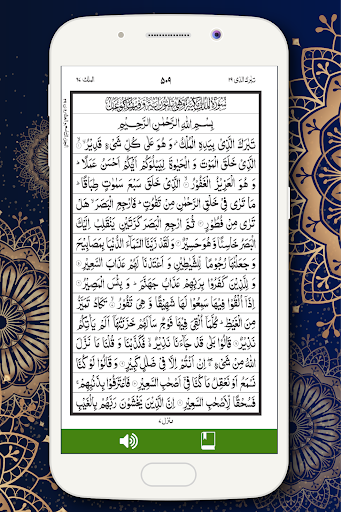 تبٰرك الذی ٢٩
٥٠٩
الملك ٦٧
بِسْمِ اللّٰهِ الرَّحْمٰنِ الرَّحِيْمِ
تَبٰرَكَ الَّذِیْ بِيَدِهِ الْمُلْكُ ۫ وَ هُوَ عَلٰى كُلِّ شَیْءٍ قَدِيْرُ ۙ
الَّذِیْ خَلَقَ الْمَوْتَ وَ الْحَيٰوةَ لِيَبْلُوَكُمْ اَيُّكُمْ اَحْسَنُ عَمَلًا ؕ
وَ هُوَ الْعَزِيْزُ الْغَفُوْرُ ۙ الَّذِیْ خَلَقَ سَبْعَ سَمٰوٰتٍ طِبَاقًا ؕ
مَا تَرٰى فِیْ خَلْقِ الرَّحْمٰنِ مِنْ تَفٰوُتٍ ؕ فَارْجِعِ الْبَصَرَ ۙ هَلْ
تَرٰى مِنْ فُطُوْرٍ ۝ ثُمَّ ارْجِعِ الْبَصَرَ كَرَّتَيْنِ يَنْقَلِبْ اِلَيْكَ
الْبَصَرُ خَاسِئًا وَّ هُوَ حَسِيْرٌ ۝ وَ لَقَدْ زَيَّنَّا السَّمَآءَ الدُّنْيَا بِمَصَابِيْحَ
وَ جَعَلْنٰهَا رُجُوْمًا لِّلشَّيٰطِيْنِ وَ اَعْتَدْنَا لَهُمْ عَذَابَ السَّعِيْرِ ۝
وَ لِلَّذِيْنَ كَفَرُوْا بِرَبِّهِمْ عَذَابُ جَهَنَّمَ ؕ وَ بِئْسَ الْمَصِيْرُ ۝
اِذَاۤ اُلْقُوْا فِيْهَا سَمِعُوْا لَهَا شَهِيْقًا وَّ هِیَ تَفُوْرُ ۙ تَكَادُ تَمَيَّزُ
مِنَ الْغَيْظِ ؕ كُلَّمَاۤ اُلْقِیَ فِيْهَا فَوْجٌ سَاَلَهُمْ خَزَنَتُهَاۤ اَلَمْ يَاْتِكُمْ
نَذِيْرٌ ۝ قَالُوْا بَلٰى قَدْ جَآءَنَا نَذِيْرٌ ۙ فَكَذَّبْنَا وَ قُلْنَا مَا نَزَّلَ
اللّٰهُ مِنْ شَیْءٍ ۖ اِنْ اَنْتُمْ اِلَّا فِیْ ضَلٰلٍ كَبِيْرٍ ۝ وَ قَالُوْا لَوْ كُنَّا
نَسْمَعُ اَوْ نَعْقِلُ مَا كُنَّا فِیْۤ اَصْحٰبِ السَّعِيْرِ ۝ فَاعْتَرَفُوْا بِذَنْۢبِهِمْ ۚ
فَسُحْقًا لِّاَصْحٰبِ السَّعِيْرِ ۝ اِنَّ الَّذِيْنَ يَخْشَوْنَ رَبَّهُمْ بِالْغَيْبِ
منزل ٧